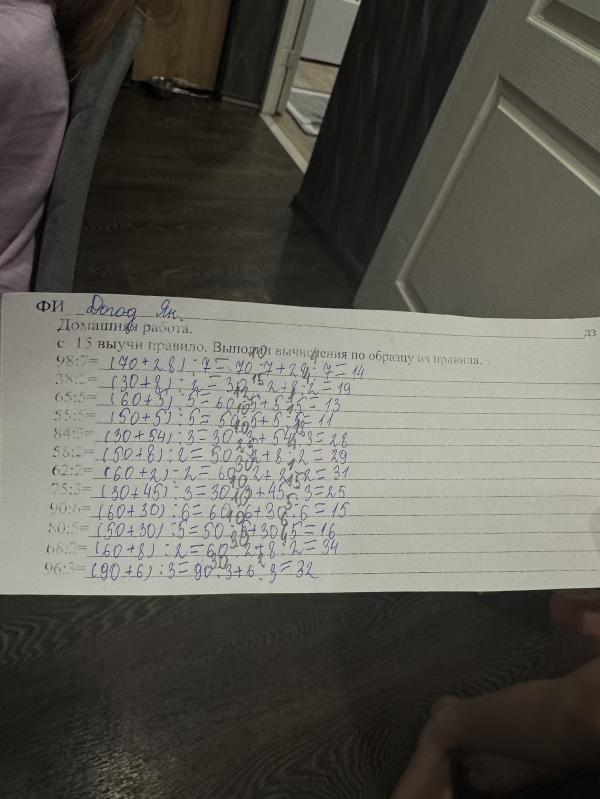 ФИ Догод Ян.
дз
Домашняя работа.
с. 15 выучи правило. Выполни вычисления по образцу из правила.
98:7= (70+28):7=70:7+28:7=14
38:2= (30+8):2=30:2+8:2=19
65:5= (60+5):5=60:5+5:5=13
55:5= (50+5):5=50:5+5:5=11
84:3= (30+54):3=30:3+54:3=28
58:2= (50+8):2=50:2+8:2=29
62:2= (60+2):2=60:2+2:2=31
75:3= (30+45):3=30:3+45:3=25
90:6= (60+30):6=60:6+30:6=15
80:5= (50+30):5=50:5+30:5=16
68:2= (60+8):2=60:2+8:2=34
96:3= (90+6):3=90:3+6:3=32